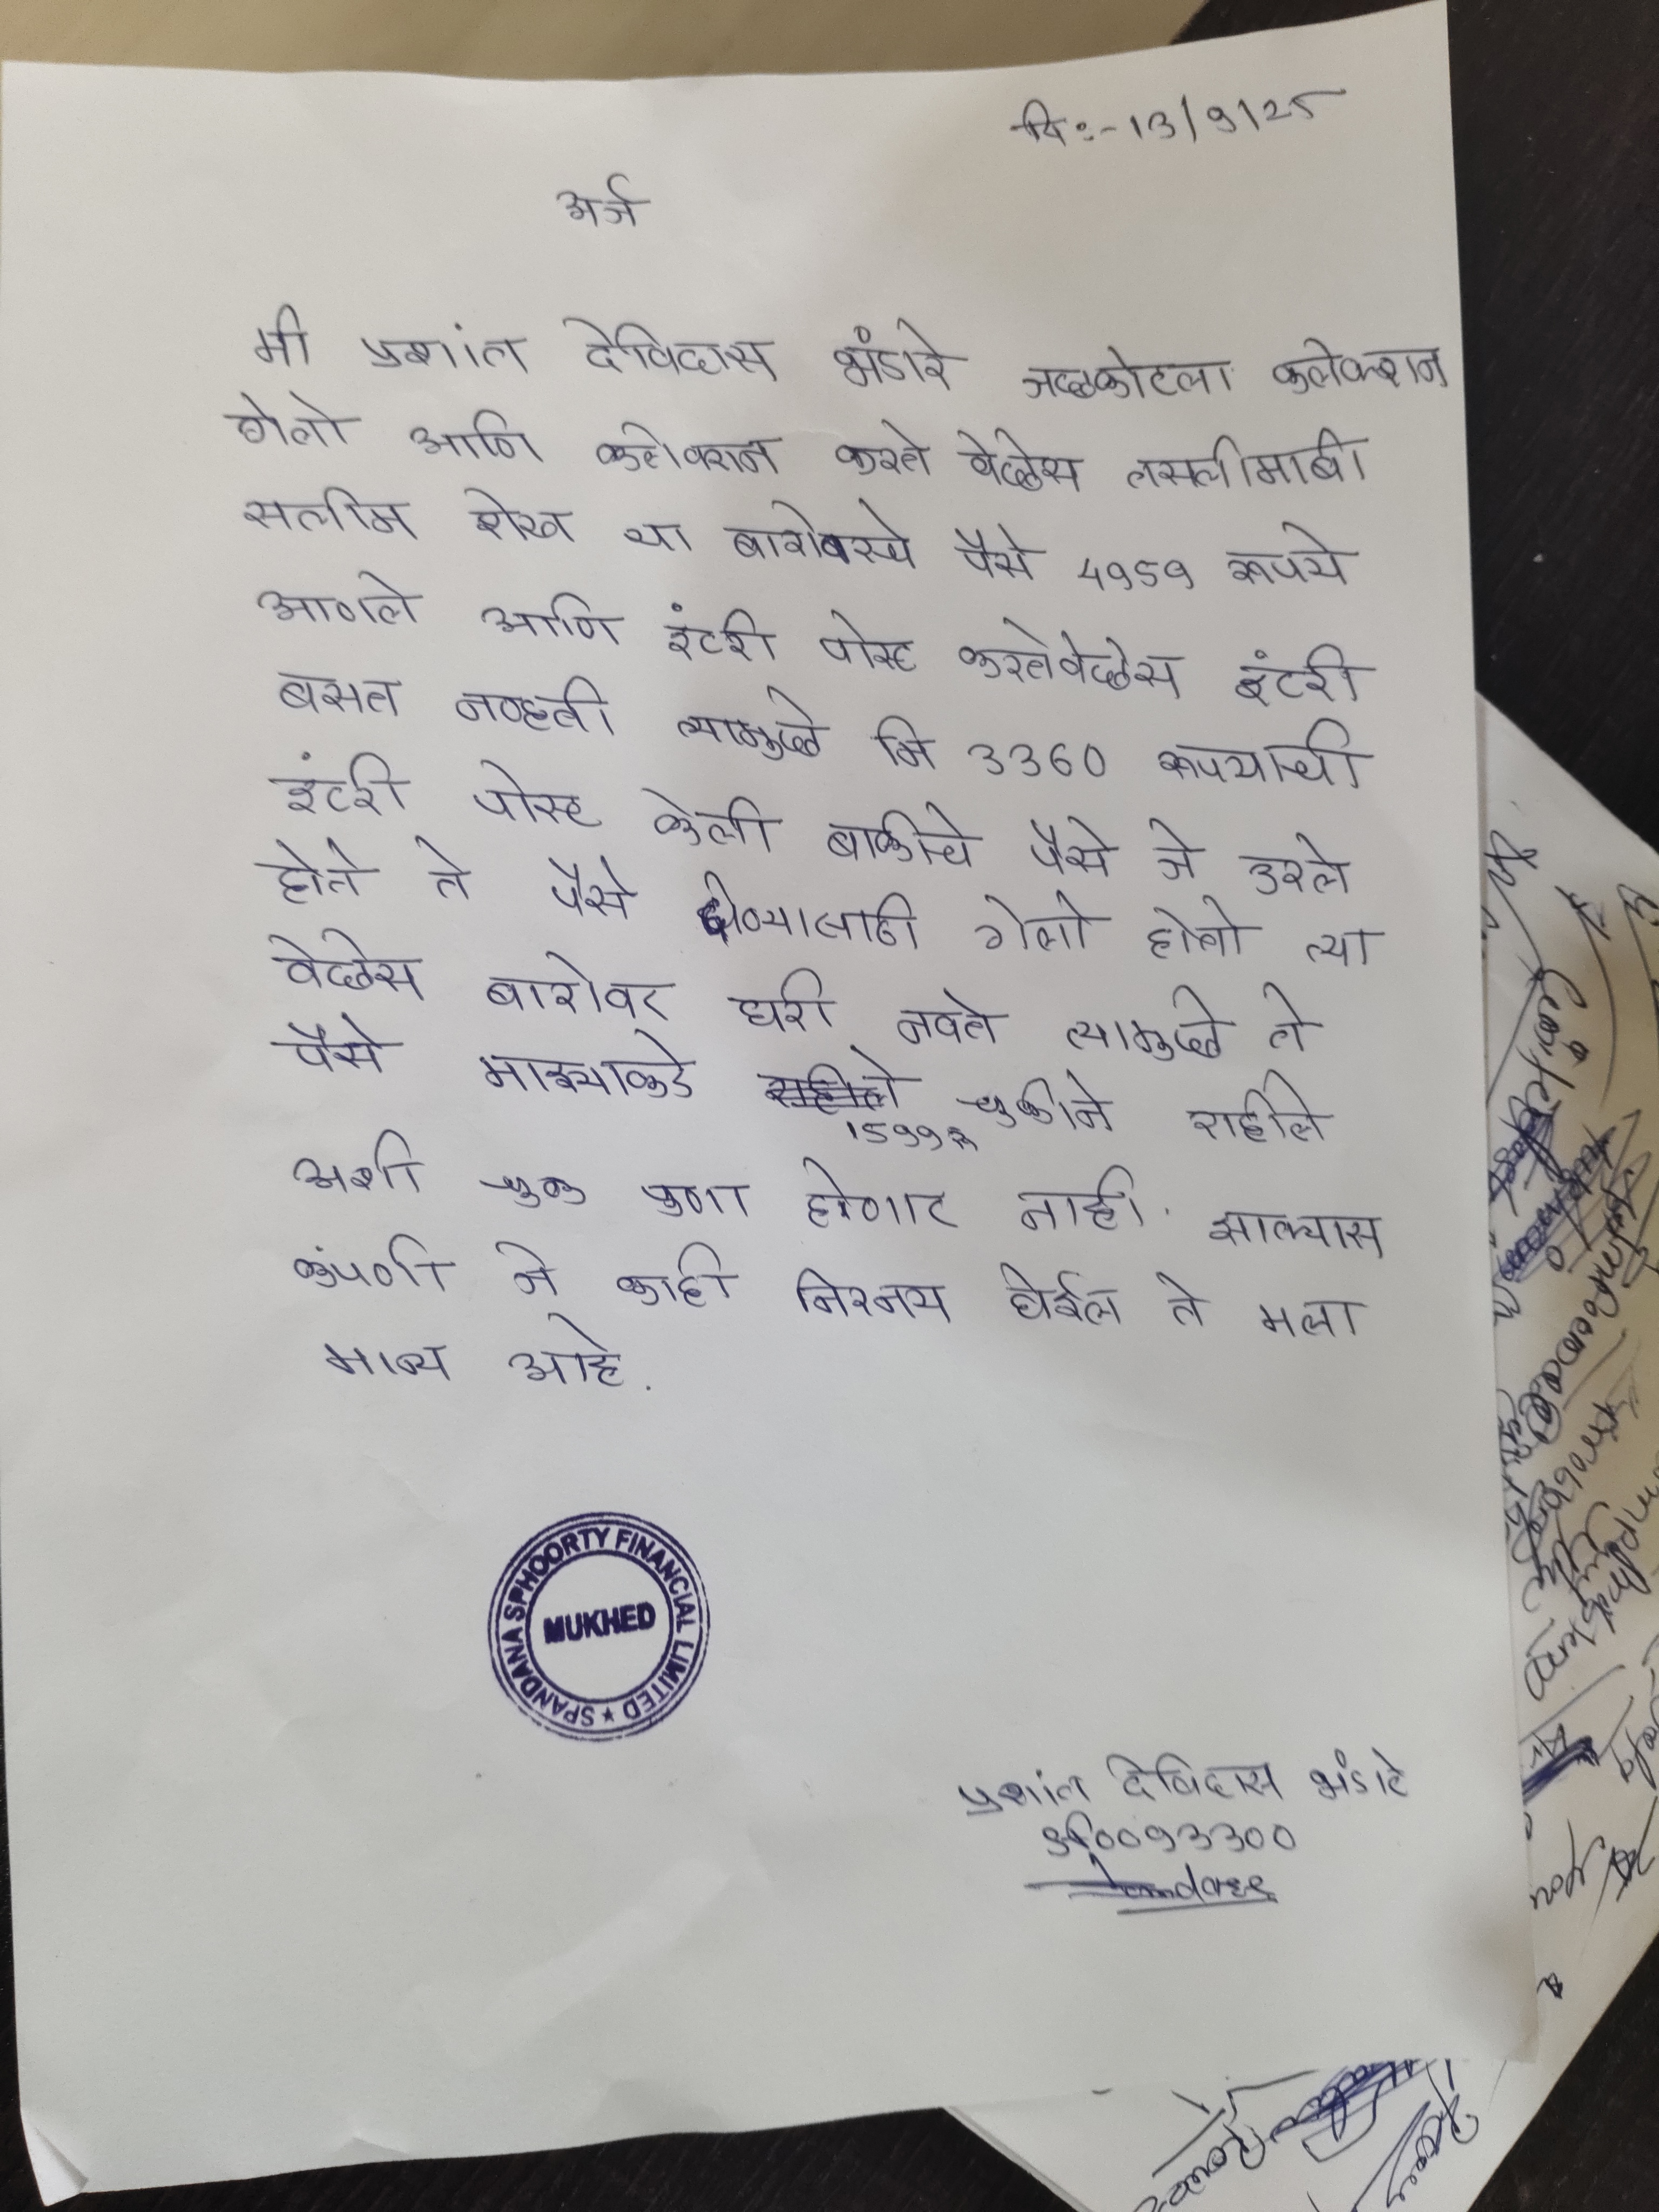 दि :- 13/9/25
अर्ज
मी प्रशांत देविदास भंडारे जळकोटला कलेक्शन
गेलो आणि कलेक्शन करते वेळेस तसलीमाबी
सलीम शेख या बारोवरचे पैसे 4959 रूपये
आणले आणि इंटरी पोस्ट करतेवेळेस इंटरी
बसत नव्हती त्यामुळे मि 3360 रूपयाची
इंटरी पोस्ट केली बाकीचे पैसे जे उरले
होते ते पैसे देण्यासाठी गेलो होतो त्या
वेळेस बारोवर घरी नवते त्यामुळे ते
पैसे माझ्याकडे राहीले चुकीने राहीले
1599 रु
अशी चुक पुणा होणार नाही. झाल्यास
कंपणी जे काही निरनय घेईल ते मला
मान्य आहे.
SPANDANA SPHOORTY FINANCIAL LIMITED ★
MUKHED
प्रशांत देविदास भंडारे
SF0093300